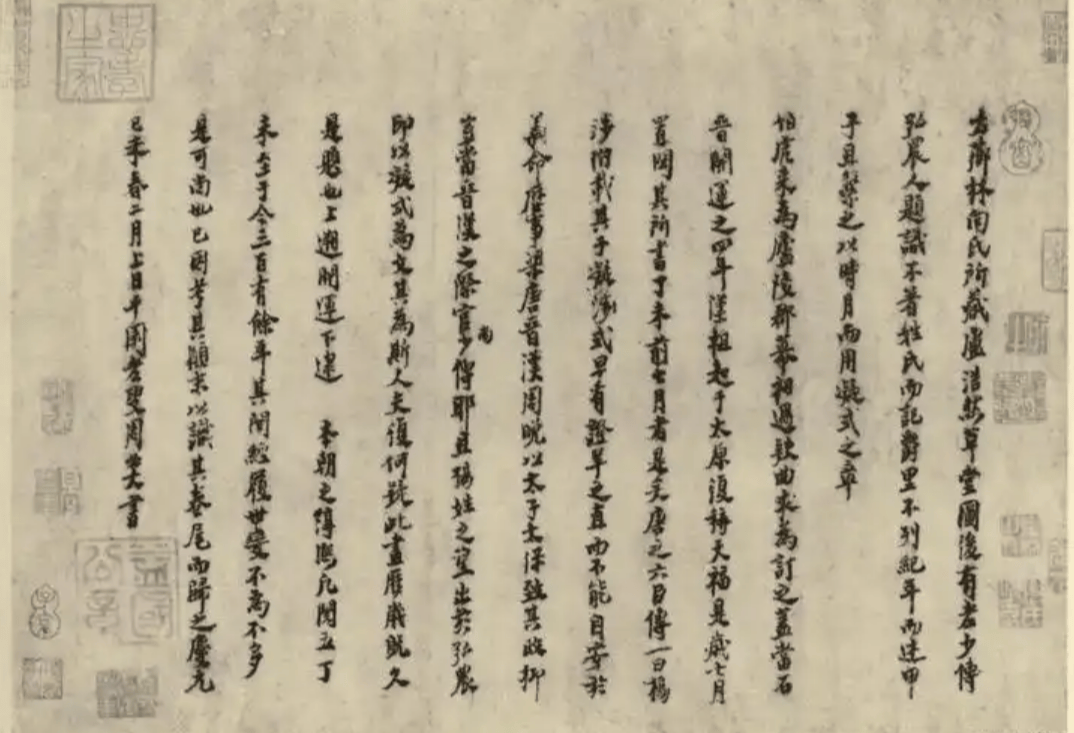 右薌林向氏所藏盧浩然草堂圖後有老少傅
弘農人題識不著姓氏而記爵里不列紀年而述甲
子且繫之以時月而用凝式之章
伯虎來為廬陵郡幕相過款曲求為訂之蓋當石
晉開運之四年漢祖起于太原復稱天福是歲七月
置閏其所書丁未前七月者是矣唐之六臣傳一曰楊
涉附載其子凝涉式早有證羊之直而不能自安於
義命歷事梁唐晉漢周晚以太子太保致其政抑
豈當晉漢之際官尚少傅耶且楊姓之望出於弘農
即以凝式為文其為斯人夫復何疑此畫歷歲既久
是題也上遡開運下逮 本朝之淳熙凡閱五丁
未至于今三百有餘年其間經履世變不為不多
是可尚也已因考其顛末以識其卷尾而歸之慶元
己未春二月上日平園老叟周必大書